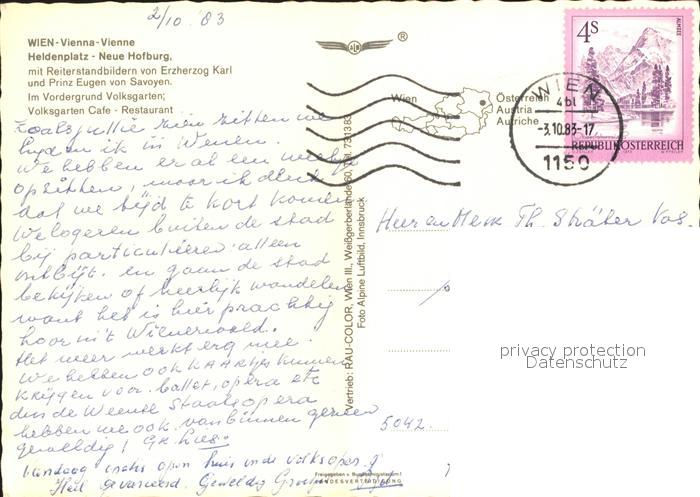 2/10.83
WIEN-Vienna-Vienne
Heldenplatz - Neue Hofburg,
mit Reiterstandbildern von Erzherzog Karl
und Prinz Eugen von Savoyen.
Im Vordergrund Volksgarten;
Volksgarten Cafe - Restaurant
®
Wien
Österreich
Austria
Autriche
4S
ALMSEE
REPUBLIK ÖSTERREICH
WIEN
-3.10.83-17
1150
Zoals jullie zien zitten we
en ik in Wenen.
We hebben er al een weekje
opzitten, maar ik denk
dat we tijd te kort komen
We logeren buiten de stad
bij particulieren alleen
ontbijt. en gaan de stad
bekijken of heerlijk wandelen
want het is hier prachtig
hoor in't Wienerwald.
Het weer werkt erg mee.
We hebben ook KAARTjes kunnen
krijgen voor ballet, opera etc
dus de Weense Staatsopera
hebben we ook van binnen gezien
geweldig! Gr. Lies.
Vandaag open huis in de volksoper.
Heel gevarieerd. Geweldig
Heer en Mevr Th. Sträter Vos.
5042.
Vertrieb: RAU-COLOR, Wien III., Weißgerberlände 60, Tel. 73 13 83
Foto Alpine Luftbild, Innsbruck
Freigegeben v. Bundesministerium f.
LANDESVERTEIDIGUNG
privacy protection
Datenschutz